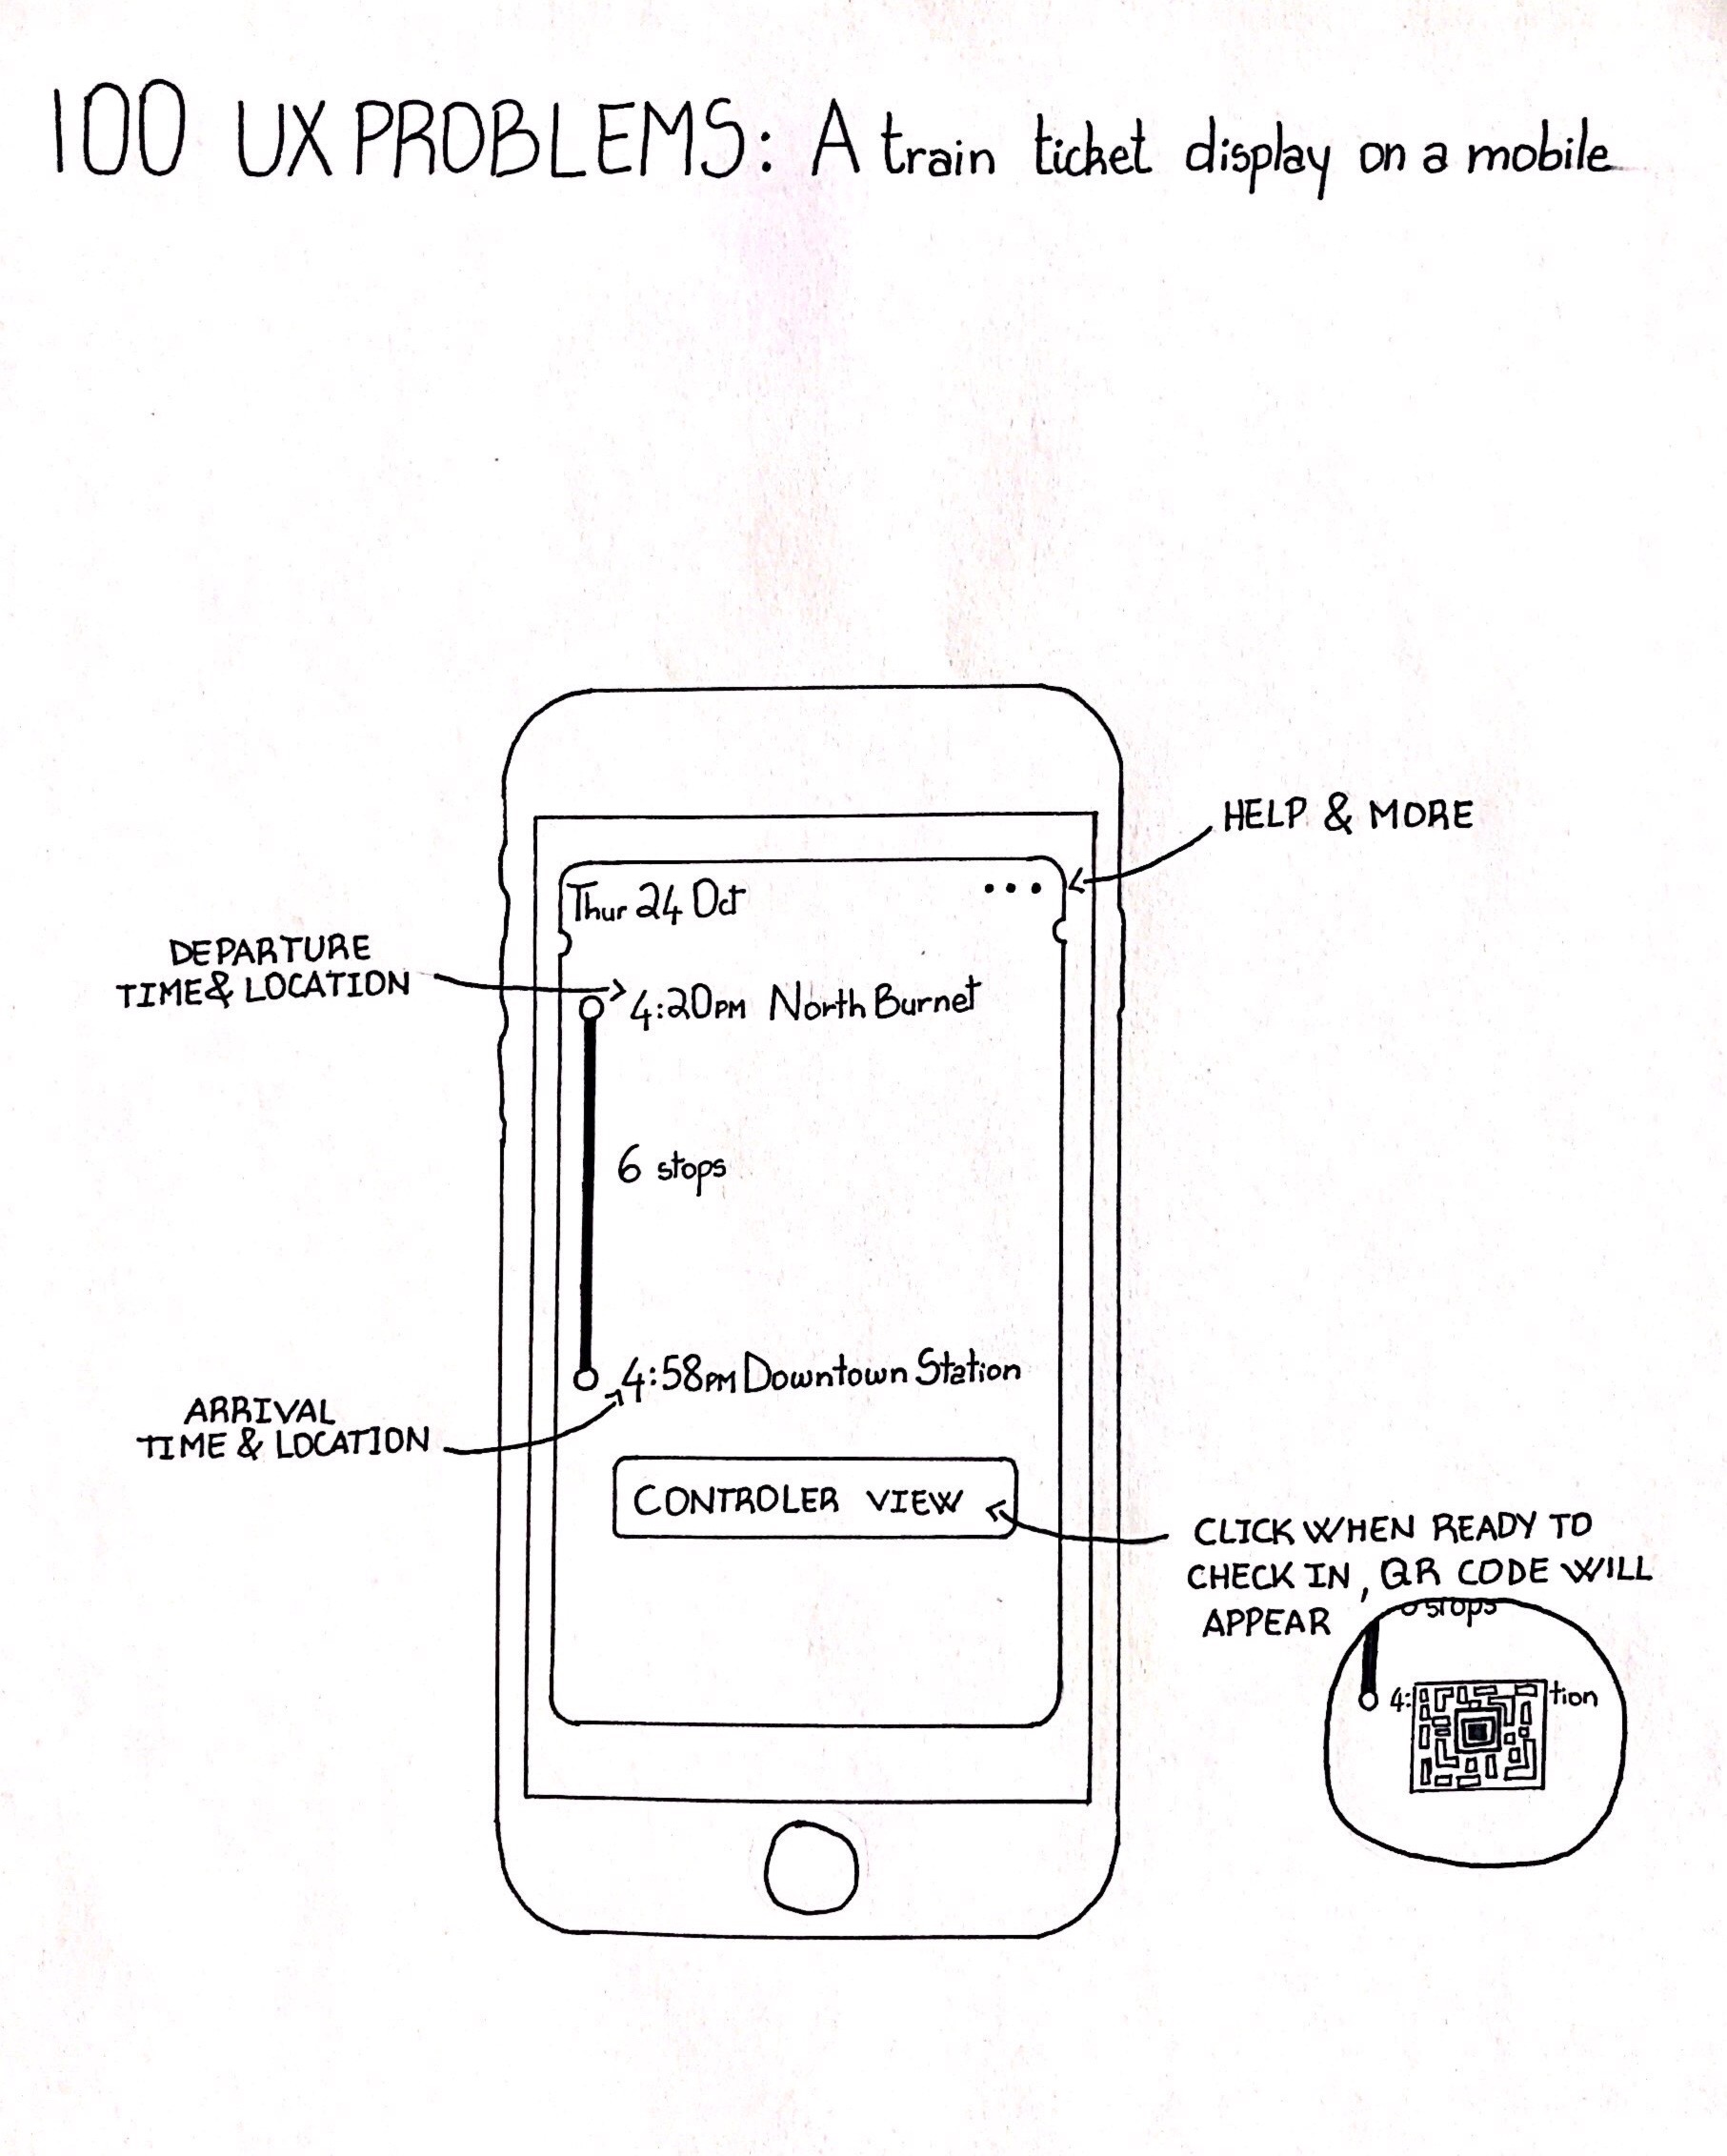 100 UX PROBLEMS: A train ticket display on a mobile
HELP & MORE
Thur 24 Oct
DEPARTURE
TIME & LOCATION
4:20PM North Burnet
6 stops
4:58PM Downtown Station
ARRIVAL
TIME & LOCATION
CONTROLER VIEW
CLICK WHEN READY TO
CHECK IN, QR CODE WILL
APPEAR
stops
4: tion